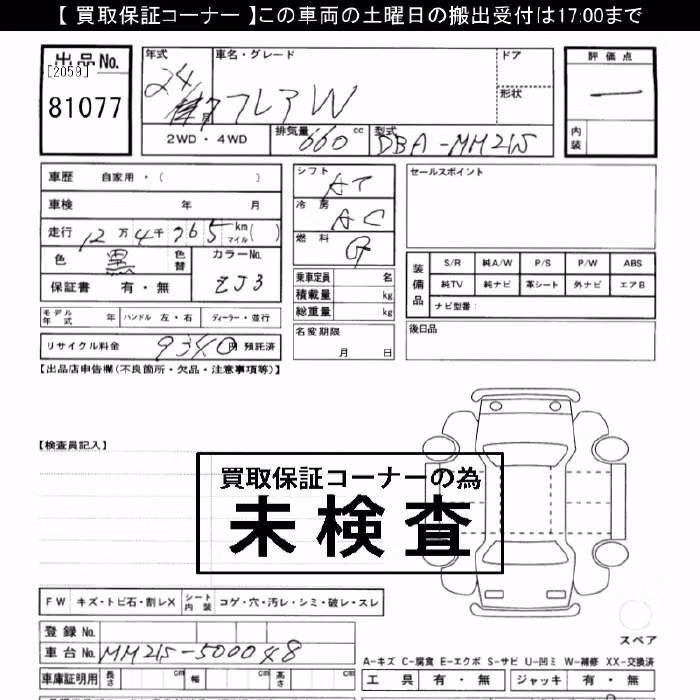 【 買取保証コーナー 】この車両の土曜日の搬出受付は17:00まで
出品No.
[2059]
81077
年式 車名・グレード ドア
24 フレアW
月 形状
2WD・4WD 排気量 660 cc 型式 DBA-MM21S
評価点
内装
車歴 自家用・( )
車検 年 月
走行 12万4千965 km マイル( )
色 黒 色替 カラーNo.
保証書 有・無 ZJ3
モデル年式 年 ハンドル 左・右 ディーラー・並行
リサイクル料金 9340円 預託済
シフト AT
冷房 AC
燃料 G
乗車定員 名
積載量 kg
総重量 kg
名変期限
月 日
セールスポイント
装備品 S/R 純A/W P/S P/W ABS
純TV 純ナビ 革シート 外ナビ エアB
ナビ型番:
後日品
【出品店申告欄(不良箇所・欠品・注意事項等)】
【検査員記入】
買取保証コーナーの為
未検査
FW キズ・トビ石・割レX シート内装 コゲ・穴・汚レ・シミ・破レ・スレ
スペア
登録No.
車台No. MM21S-500048
A-キズ C-腐食 E-エクボ S-サビ U-凹ミ W-補修 XX-交換済
車庫証明用 長さ cm 幅 cm 高さ cm
工具 有・無 ジャッキ 有・無